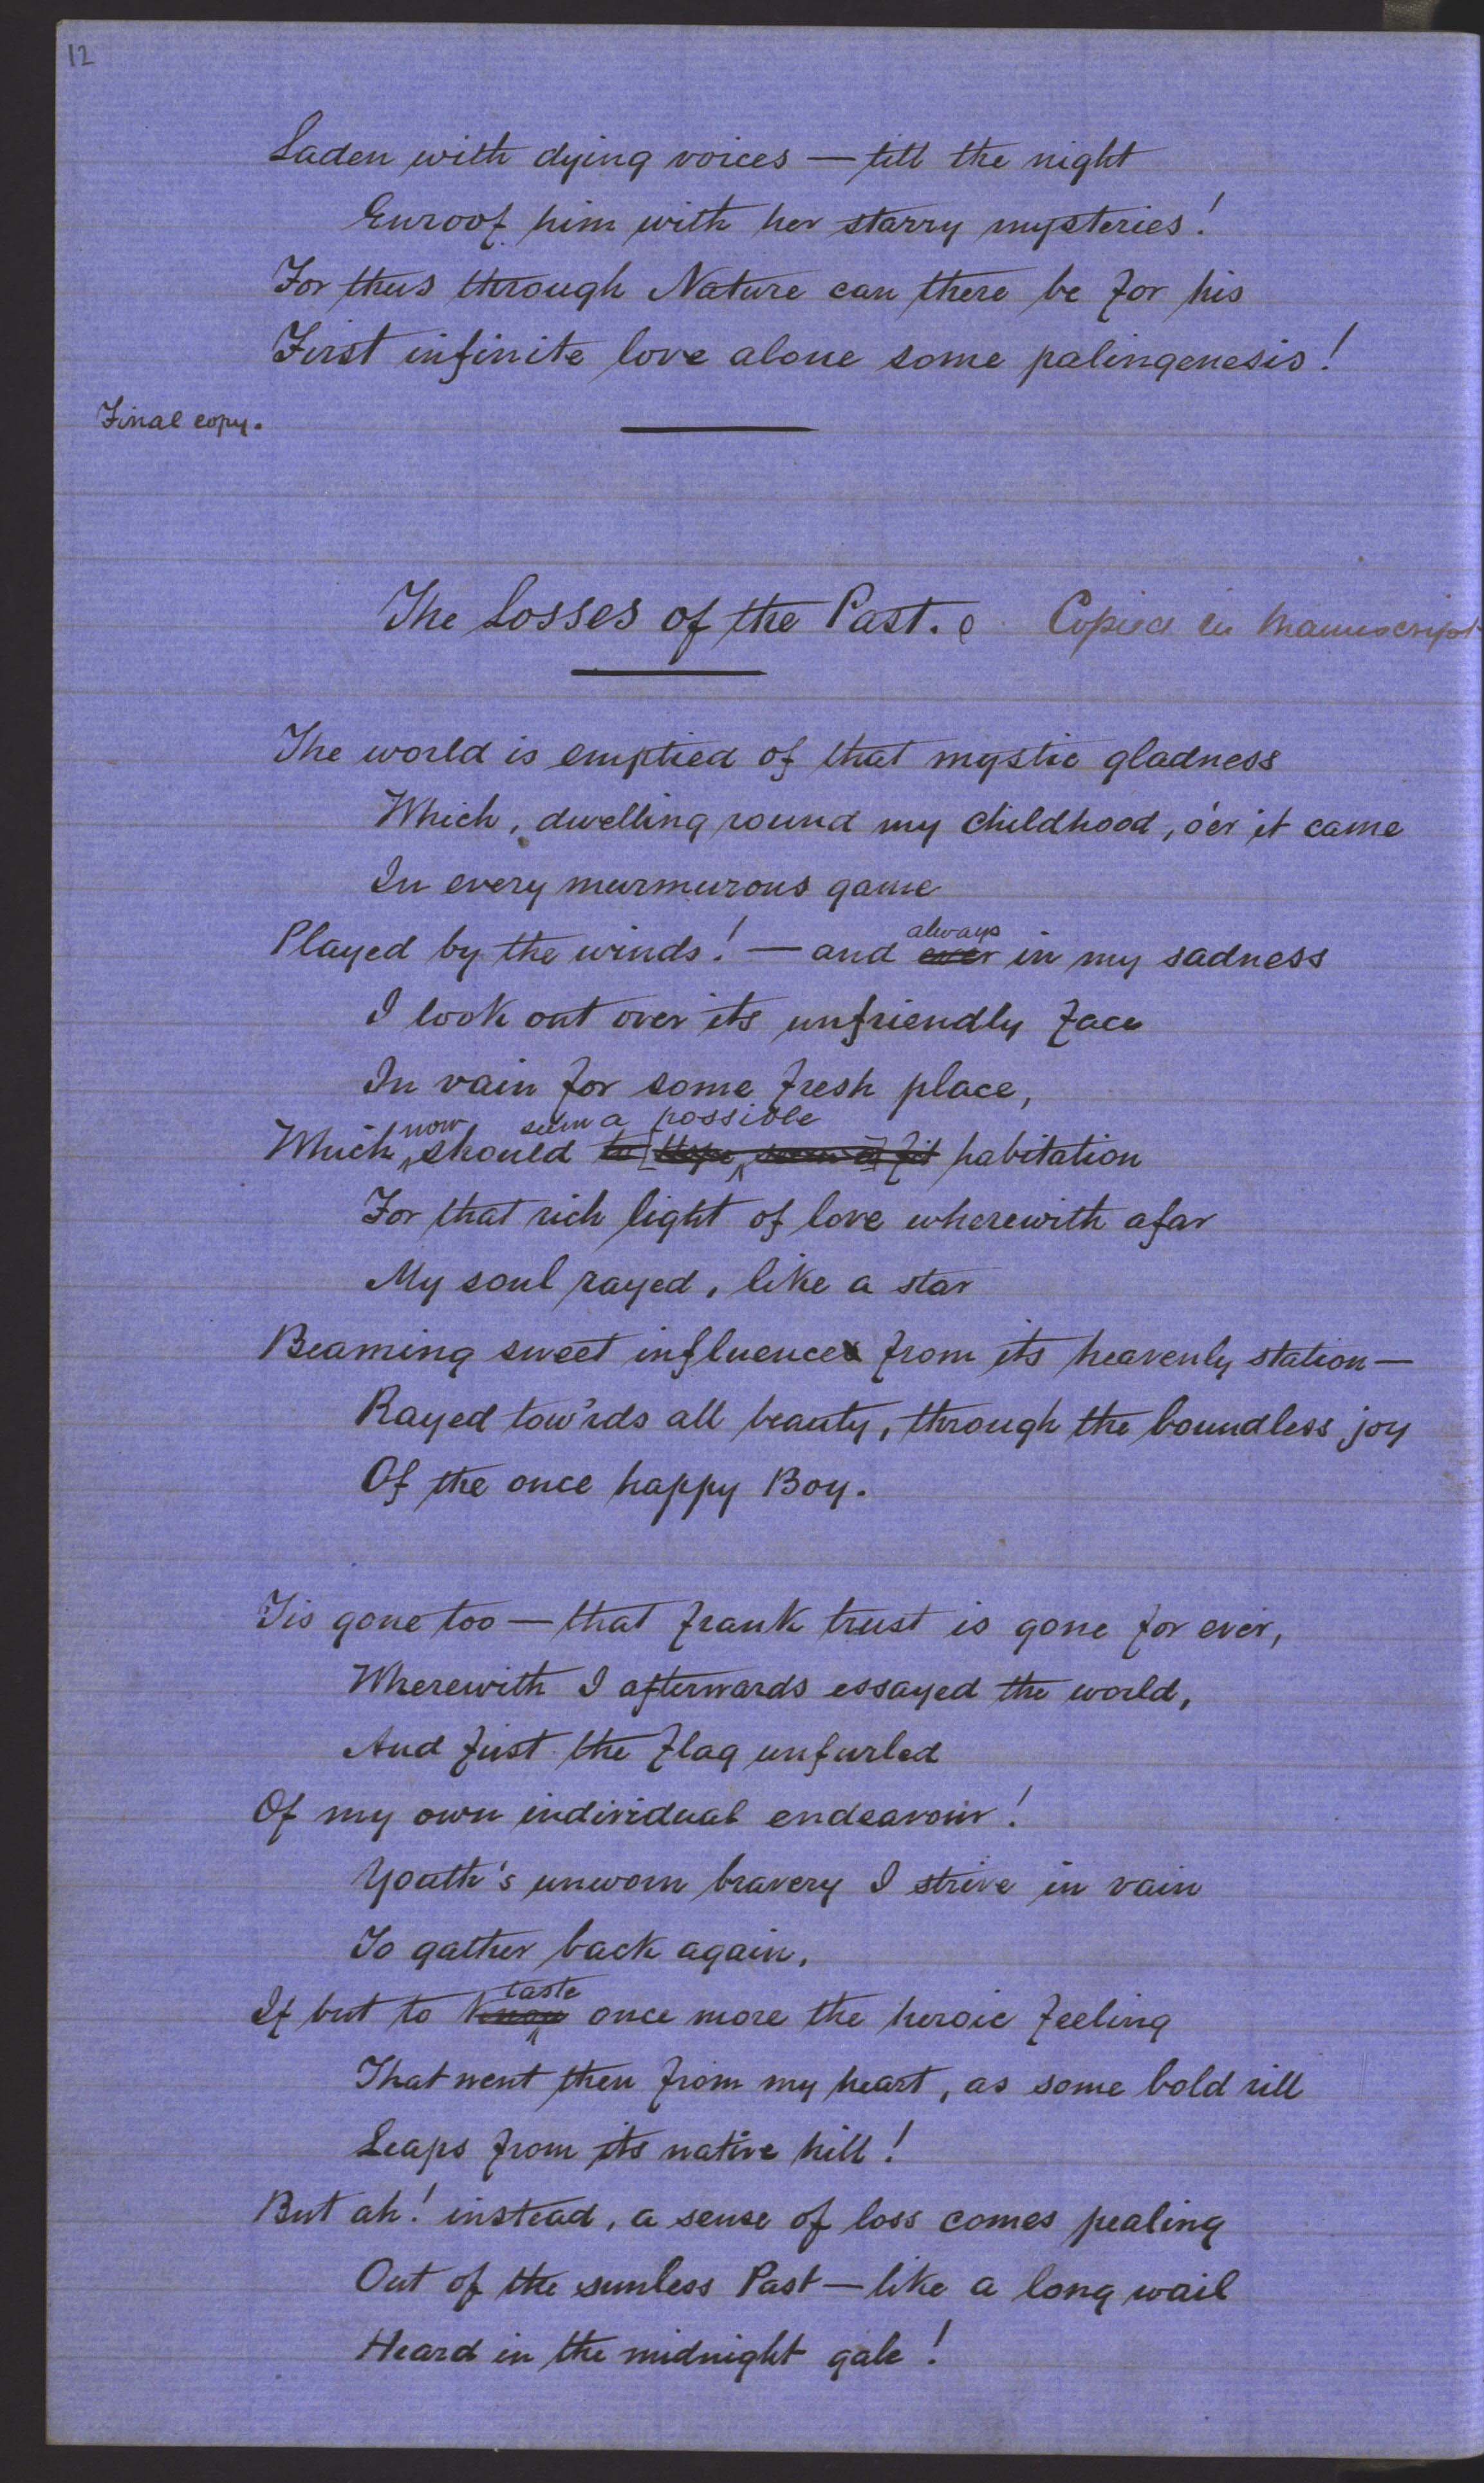 12
Laden with dying voices — till the night
Enroof him with her starry mysteries!
For thus through Nature can there be for his
First infinite love alone some palingenesis!
Final copy.
The Losses of the Past. Copied in Manuscript
The world is emptied of that mystic gladness
Which, dwelling round my childhood, o'er it came
In every murmurous game
Played by the winds! — and ever always in my sadness
I look out over its unfriendly face
In vain for some fresh place,
now seem a possible
Which should to [Hope seem a] fit habitation
For that rich light of love wherewith afar
My soul rayed, like a star
Beaming sweet influence from its heavenly station —
Rayed tow'rds all beauty, through the boundless joy
Of the once happy Boy.
Tis gone too — that frank trust is gone for ever,
Wherewith I afterwards essayed the world,
And first the flag unfurled
Of my own individual endeavour!
Youth's unworn bravery I strive in vain
To gather back again,
taste
If but to know once more the heroic feeling
That went then from my heart, as some bold rill
Leaps from its native hill!
But ah! instead, a sense of loss comes pealing
Out of the sunless Past — like a long wail
Heard in the midnight gale!